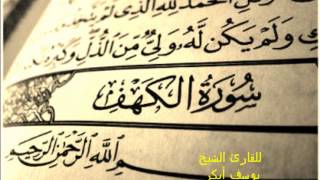 الحمد لله الذي لم يتخذ
ك ولم يكن له ولي من الذل وكبره
سورة الكهف
ـم الله الرحمن الرحيم
للقارئ الشيخ
يوسف أبكر